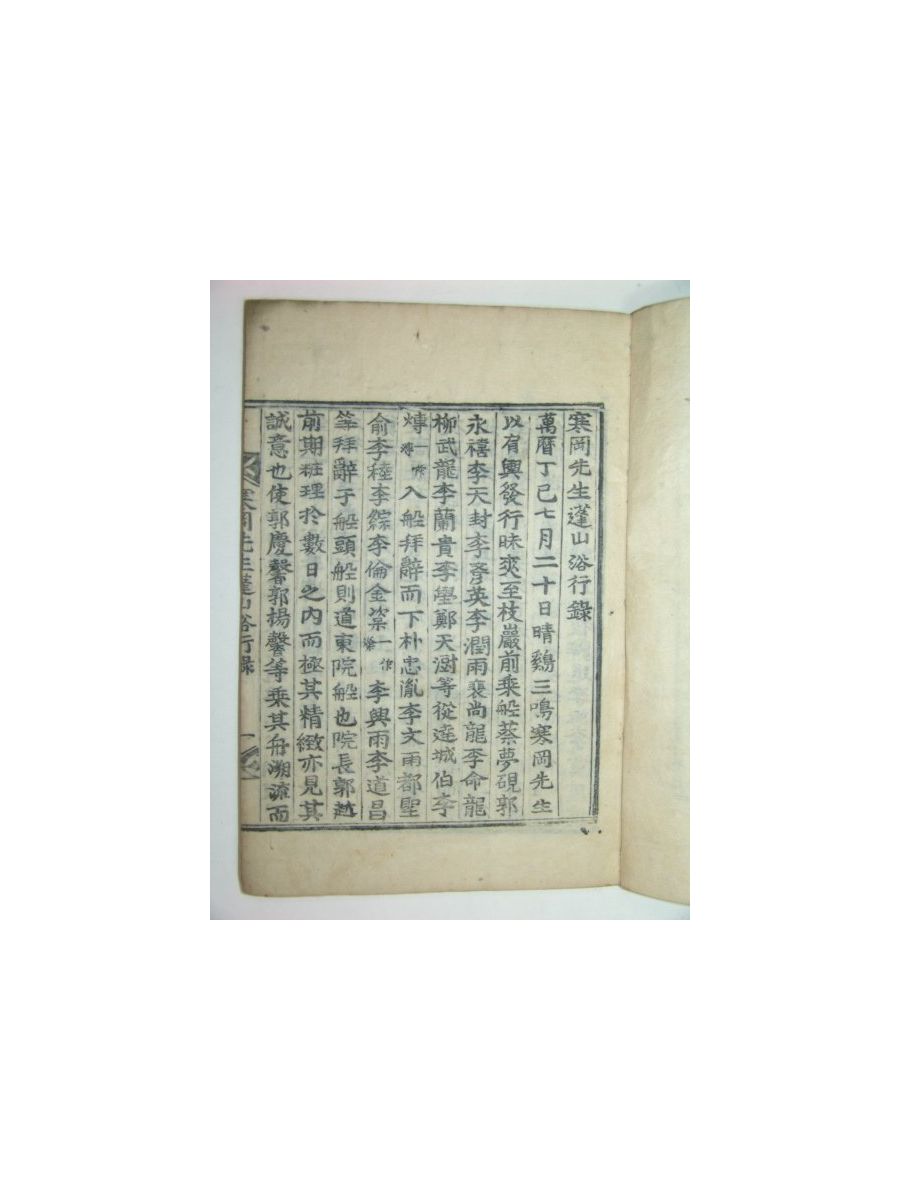 寒岡先生蓬山浴行錄
萬曆丁巳七月二十日晴鷄三鳴寒岡先生
以有輿發行昧爽至枝巖前乘船蔡夢硯郭
永禧李天封李彦英李潤雨裵尙龍李命龍
柳武龍李蘭貴李壆鄭天澍等從達城伯李
愽一作溥入船拜辭而下朴忠胤李文雨都聖
俞李稑李綜李倫金一作李興雨李道昌
等拜辭于船頭船則道東院船也院長郭赲
前期粧理於數日之內而極其精緻亦見其
誠意也使郭慶馨郭揚馨等乘其舟溯流而
寒岡先生蓬山浴行錄 一